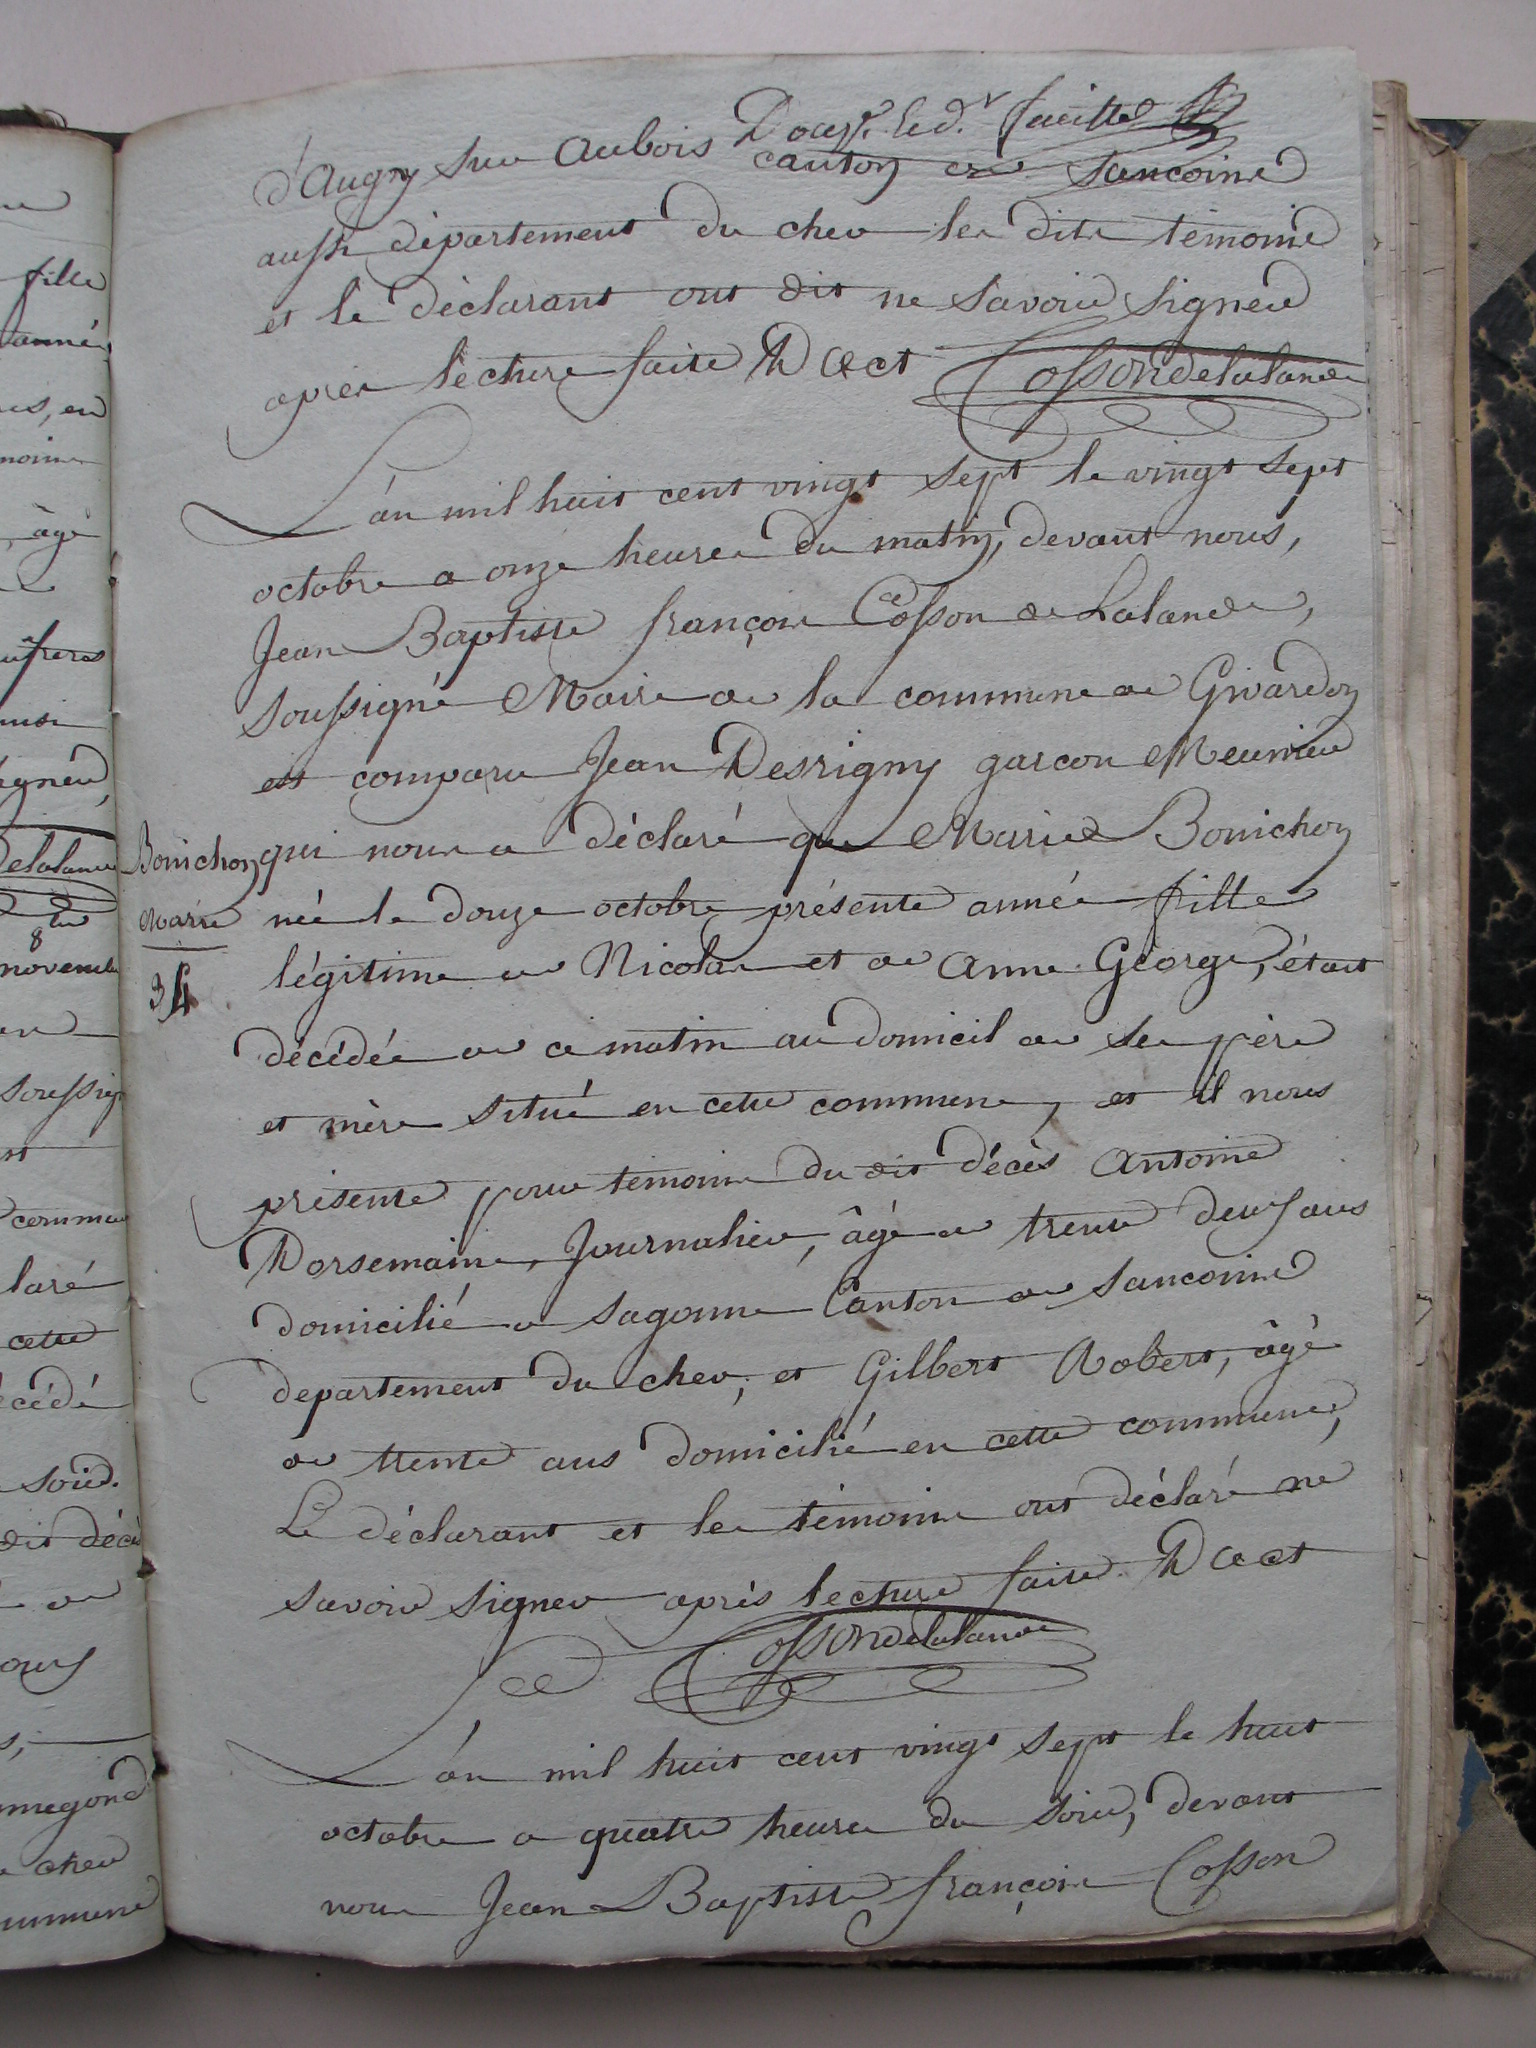 Douz.e et d.r feuillet
d'Augny sur Aubois canton de Sancoins
aussi département du cher les dits témoins
et le déclarant ont dit ne savoir signer
après lecture faite D act Cossondelalande
L'an mil huit cent vingt sept le vingt sept
octobre a onze heures du matin, devant nous,
Jean Baptiste françois Cosson de Lalande,
soussigné Maire de la commune de Givardon
est comparu Jean Desrigny garcon Meunier
Bonichon
qui nous a déclaré que Marie Bonichon
Marie
née le douze octobre présente année fille
34
légitime de Nicolas et de Anne George, étoit
décédée de ce matin au domicil de ses père
et mère situé en cette commune, et il nous
présente pour témoins du dit décès Antoine
Dorsemaine, Journalier, âgé de trente deux ans
domicilié a Sagonne Canton de Sancoins
departement du cher, et Gilbert Robert, âgé
de trente ans domicilié en cette commune,
Le déclarant et les témoins ont déclaré ne
savoir signer après lecture faite D act
Cossondelalande
L'an mil huit cent vingt sept le huit
octobre a quatre heures du soir, devant
nous Jean Baptiste françois Cosson
fille
année
âgé
8
novemb
soussig
commu
laré
cette
écédé
soir.
dit décès
de
cher